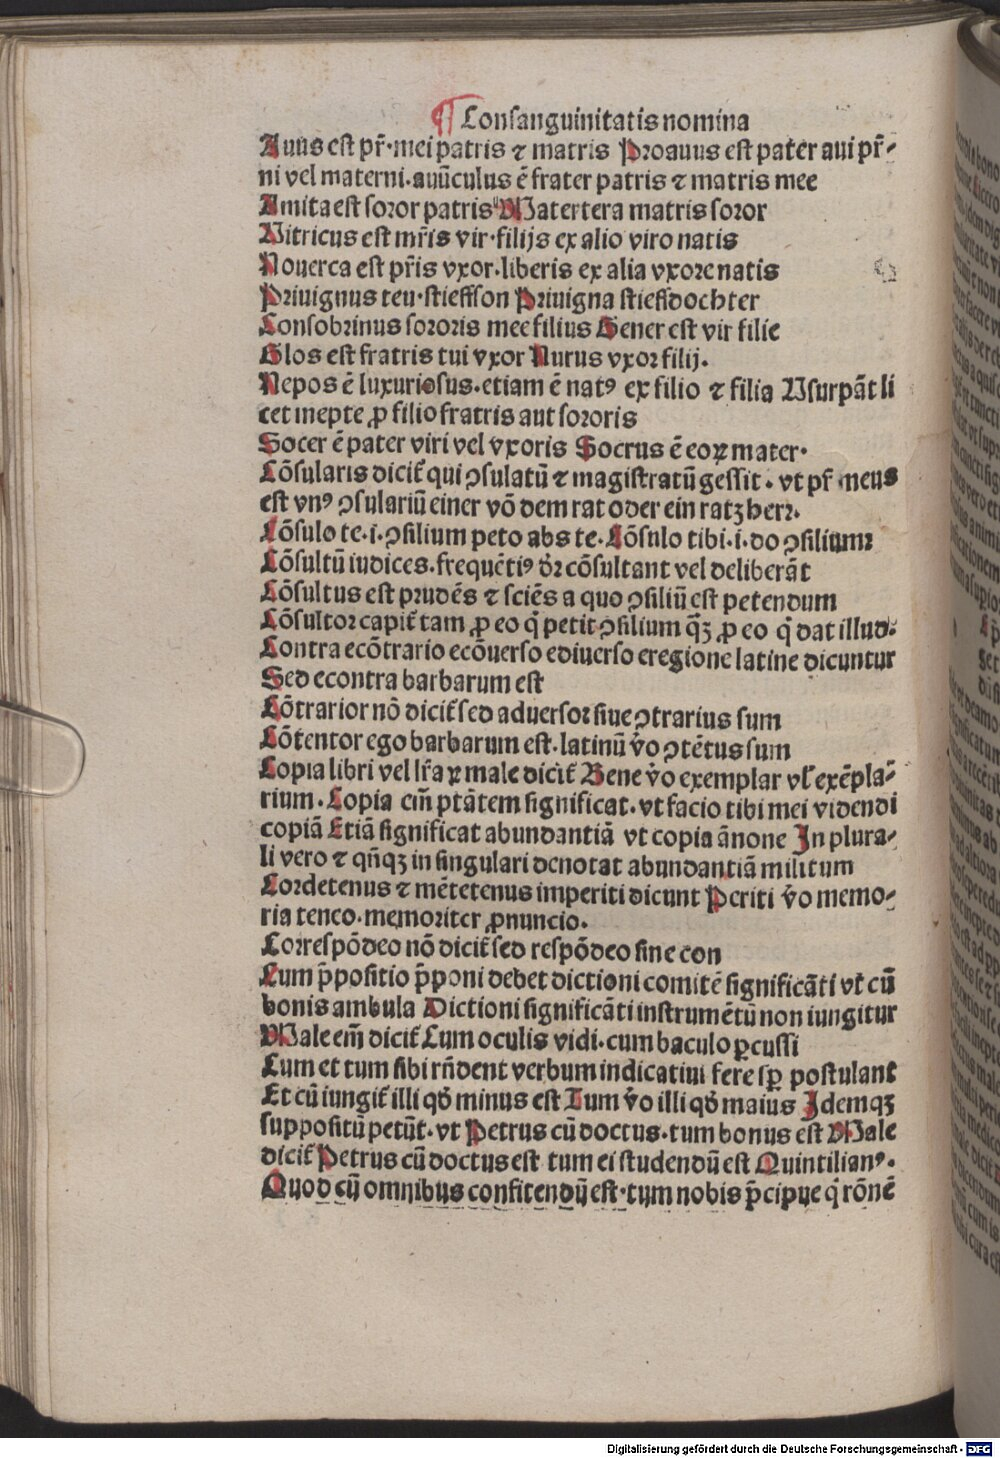 ¶ Consanguinitatis nomina
Auus est pr̃·mei patris ⁊ matris Proauus est pater aui pr̃-
ni vel materni.auũculus ẽ frater patris ⁊ matris mee
Amita est soror patris Matertera matris soror
Vitricus est mr̃is vir·filijs ex alio viro natis
Nouerca est pr̃is vxor.liberis ex alia vxore natis
Priuignus teu·stieffson Priuigna stieffdochter
Consobrinus sororis mee filius Gener est vir filie
Glos est fratris tui vxor Nurus vxor filij.
Nepos ẽ luxuriosus.etiam ẽ natꝰ ex filio ⁊ filia Usurpãt li
cet inepte ꝓ filio fratris aut sororis
Socer ẽ pater viri vel vxoris Socrus ẽ eoꝝ mater.
Cõsularis dicit̃ qui ꝯsulatũ ⁊ magistratũ gessit. vt pr̃ meus
est vnꝰ ꝯsulariũ einer võ dem rat oder ein ratzherr.
Cõsulo te.i.ꝯsilium peto abs te.Cõsulo tibi.i.do ꝯsilium:
Cõsultũ iudices.frequẽtiꝰ dr̃ cõsultant vel deliberãt
Cõsultus est prudẽs ⁊ sciẽs a quo ꝯsiliũ est petendum
Cõsultor capit̃ tam ꝓ eo q̃ petit ꝯsilium q̃ꝫ ꝓ eo q̃ dat illud.
Contra ecõtrario ecõuerso ediuerso eregione latine dicuntur
Sed econtra barbarum est
Cõtrarior nõ dicit̃ sed aduersor siue ꝯtrarius sum
Cõtentor ego barbarum est.latinũ v̓o ꝯtẽtus sum
Copia libri vel lr̃aꝝ male dicit̃ Bene v̓o exemplar vl̓ exẽpla-
rium.Copia em̃ ptãtem significat.vt facio tibi mei videndi
copiã Etiã significat abundantiã vt copia ãnone In plura-
li vero ⁊ qñqꝫ in singulari denotat abundantiã militum
Cordetenus ⁊ mẽtetenus imperiti dicunt Periti v̓o memo-
ria teneo.memoriter ꝓnuncio.
Correspõdeo nõ dicit̃ sed respõdeo sine con
Cum p̃positio p̃poni debet dictioni comitẽ significãti vt cũ
bonis ambula Dictioni significãti instrumẽtũ non iungitur
Male em̃ dicit̃ Cum oculis vidi.cum baculo ꝑcussi
Cum et tum sibi rñdent verbum indicatiui fere sꝑ postulant
Et cũ iungit̃ illi qd̓ minus est Tum v̓o illi qd̓ maius Idemqꝫ
suppositũ petũt.vt Petrus cũ doctus.tum bonus est Male
dicit̃ Petrus cũ doctus est tum ei studendũ est Quintilianꝰ.
Quod cũ omnibus confitendũ est.tum nobis p̃cipue q̃ rõnẽ
Digitalisierung gefördert durch die Deutsche Forschungsgemeinschaft - DFG